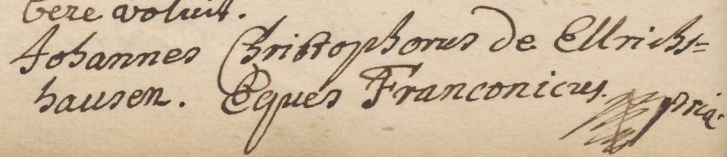 bere voluit.
Johannes Christophorus de Ellrichs=
hausen. Eques Franconicus. mpria.